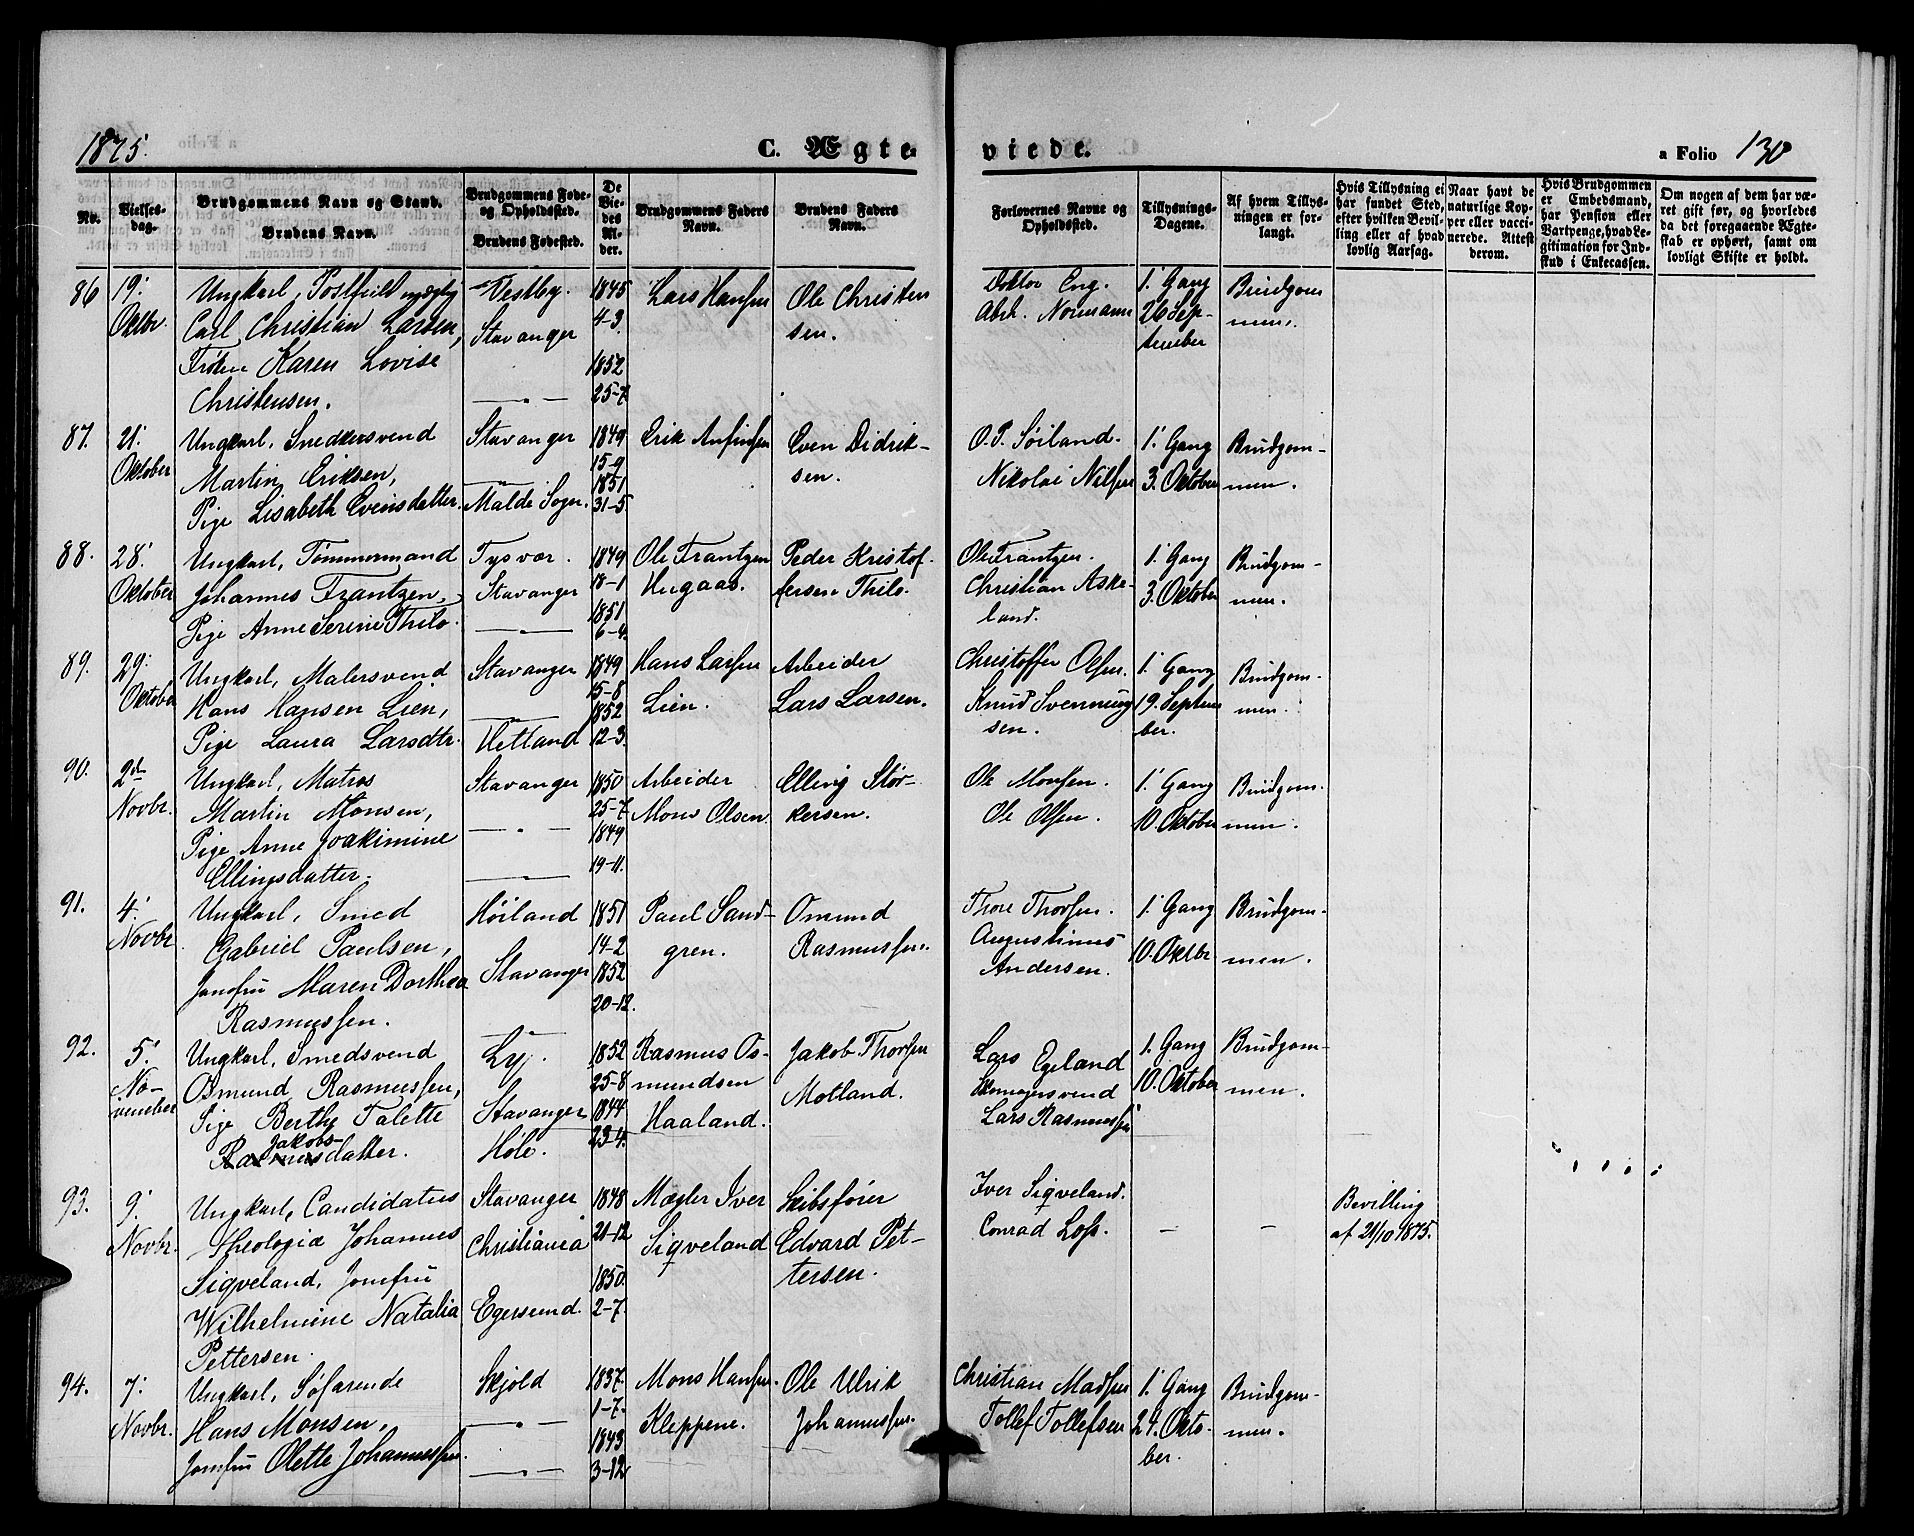 1875.
C. Ægte-
viede.
a Folio 130
No.
Vielses-
dag.
Brudgommens Navn og Stand.
Brudens Navn.
Brudgommens Føde-
og Opholdsted.
Brudens Fødested.
De
Vie-
des
Al-
der.
Brudgommens Faders
Navn.
Brudens Faders
Navn.
Forlovernes Navne og
Opholdsted.
Tillysnings-
Dagene.
Af hvem Tillys-
ningen er for-
langt.
Hvis Tillysning ei
har fundet Sted,
efter hvilken Bevil-
ling eller af hvad
lovlig Aarsag.
Naar havt de
naturlige Kop-
per eller vacci-
nerede. Attest
derom.
Hvis Brudgommen
er Embedsmand,
har Pension eller
Vartpenge, hvad Le-
gitimation for Ind-
skud i Enkecassen.
Om nogen af dem har væ-
ret gift før, og hvorledes
da det foregaaende Ægte-
skab er ophørt, samt om
lovligt Skifte er holdt.
86
19'
Oktbr.
Ungkarl,
Carl Christian Larsen,
Frøken Karen Lovise
Christensen.
Vestby.
Stavanger
— " —
1845
4-3.
1852
25-7
Lars Hansen
Ole Christen
sen.
Doktor Eng.
Abrh. Normann
1' Gang
26 Sep-
tember
Brudgom
men.
87.
21'
Oktober
Ungkarl, Snedkersvend
Martin Eriksen,
Pige Lisabeth Evensdatter.
Stavanger
— " —
Malde Sogn.
1849
15-9
1851
31-5
Erik Anfinsen
Even Didrik-
sen.
O. T. Søiland.
Nikolai Nilsen
1' Gang
3. Oktober
Brudgom-
men.
88.
28'
Oktober
Ungkarl, Tømmermand
Johannes Frantzen,
Pige Anne Serine Thilo.
Tysvær.
Stavanger
— " —
1849
18-1
1851
6-4.
Ole Frantzen
Hugaas.
Peder Kristof-
fersen Thilo.
Ole Frantzen.
Christian Aske-
land.
1' Gang
3. Oktober
Brudgom-
men.
89.
29'
Oktober
Ungkarl, Malersvend
Hans Hansen Lien,
Pige Laura Larsdtr.
Stavanger
— " —
Hetland
1849
15-8
1852
12-3.
Hans Larsen
Lien.
Arbeider
Lars Larsen.
Christoffer Olsen.
Knud Svenning
sen.
1' Gang
19. Septem
ber.
Brudgom-
men.
90.
2den
Novbr.
Ungkarl, Matros
Martin Monsen,
Pige Anne Joakimine
Ellingsdatter.
Stavanger
— " —
— " —
1850
25-7.
1849
19-11.
Arbeider
Mons Olsen.
Elling Stør-
kersen.
Ole Monsen.
Ole Olsen.
1' Gang
10. Oktober
Brudgom.
men.
91.
4'
Novbr.
Ungkarl, Smed
Gabriel Paulsen,
Jomfru Maren Dorthea
Rasmussen.
Høiland
Stavanger
— " —
1851
14-2
1852
20-12.
Paul Sand-
gren.
Omund
Rasmussen.
Thore Thorsen.
Augustinus
Andersen.
1' Gang
10. Oktbr
Brudgom-
men.
92.
5'
No-
vember
Ungkarl, Smedsvend
Osmund Rasmussen,
Pige Berthe Talette
Jakobs-
Rasmusdatter.
Ly.
Stavanger
Høle.
1852
25-8
1844
23-4.
Rasmus Os-
mundsen
Haaland.
Jakob Thorsen
Motland.
Lars Egeland
Skomagersvend
Lars Rasmussen
1. Gang
10. Oktober
Brudgom-
men.
93.
9'
Novbr.
Ungkarl, Candidatus
theologiæ Johannes
Sigveland, Jomfru
Wilhelmine Natalia
Pettersen.
Stavanger
Christiania
Egersund.
1848
21-12
1850
2-7.
Mægler Iver
Sigveland
Skibsfører
Edvard Pet-
tersen.
Iver Sigveland.
Conrad Loss.
—
—
Bevilling
af 21/10 1875.
94.
7'
Novbr.
Ungkarl, Søfarende
Hans Monsen,
Jomfru Olette Johannessen.
Skjold
— " —
— " —
1837.
1-7.
1843
3-12
Mons Hansen.
Kleppene.
Ole Ulrik
Johannessen.
Christian Madsen
Tollef Tollefsen
1' Gang
24. Okto-
ber.
Brudgom-
men.